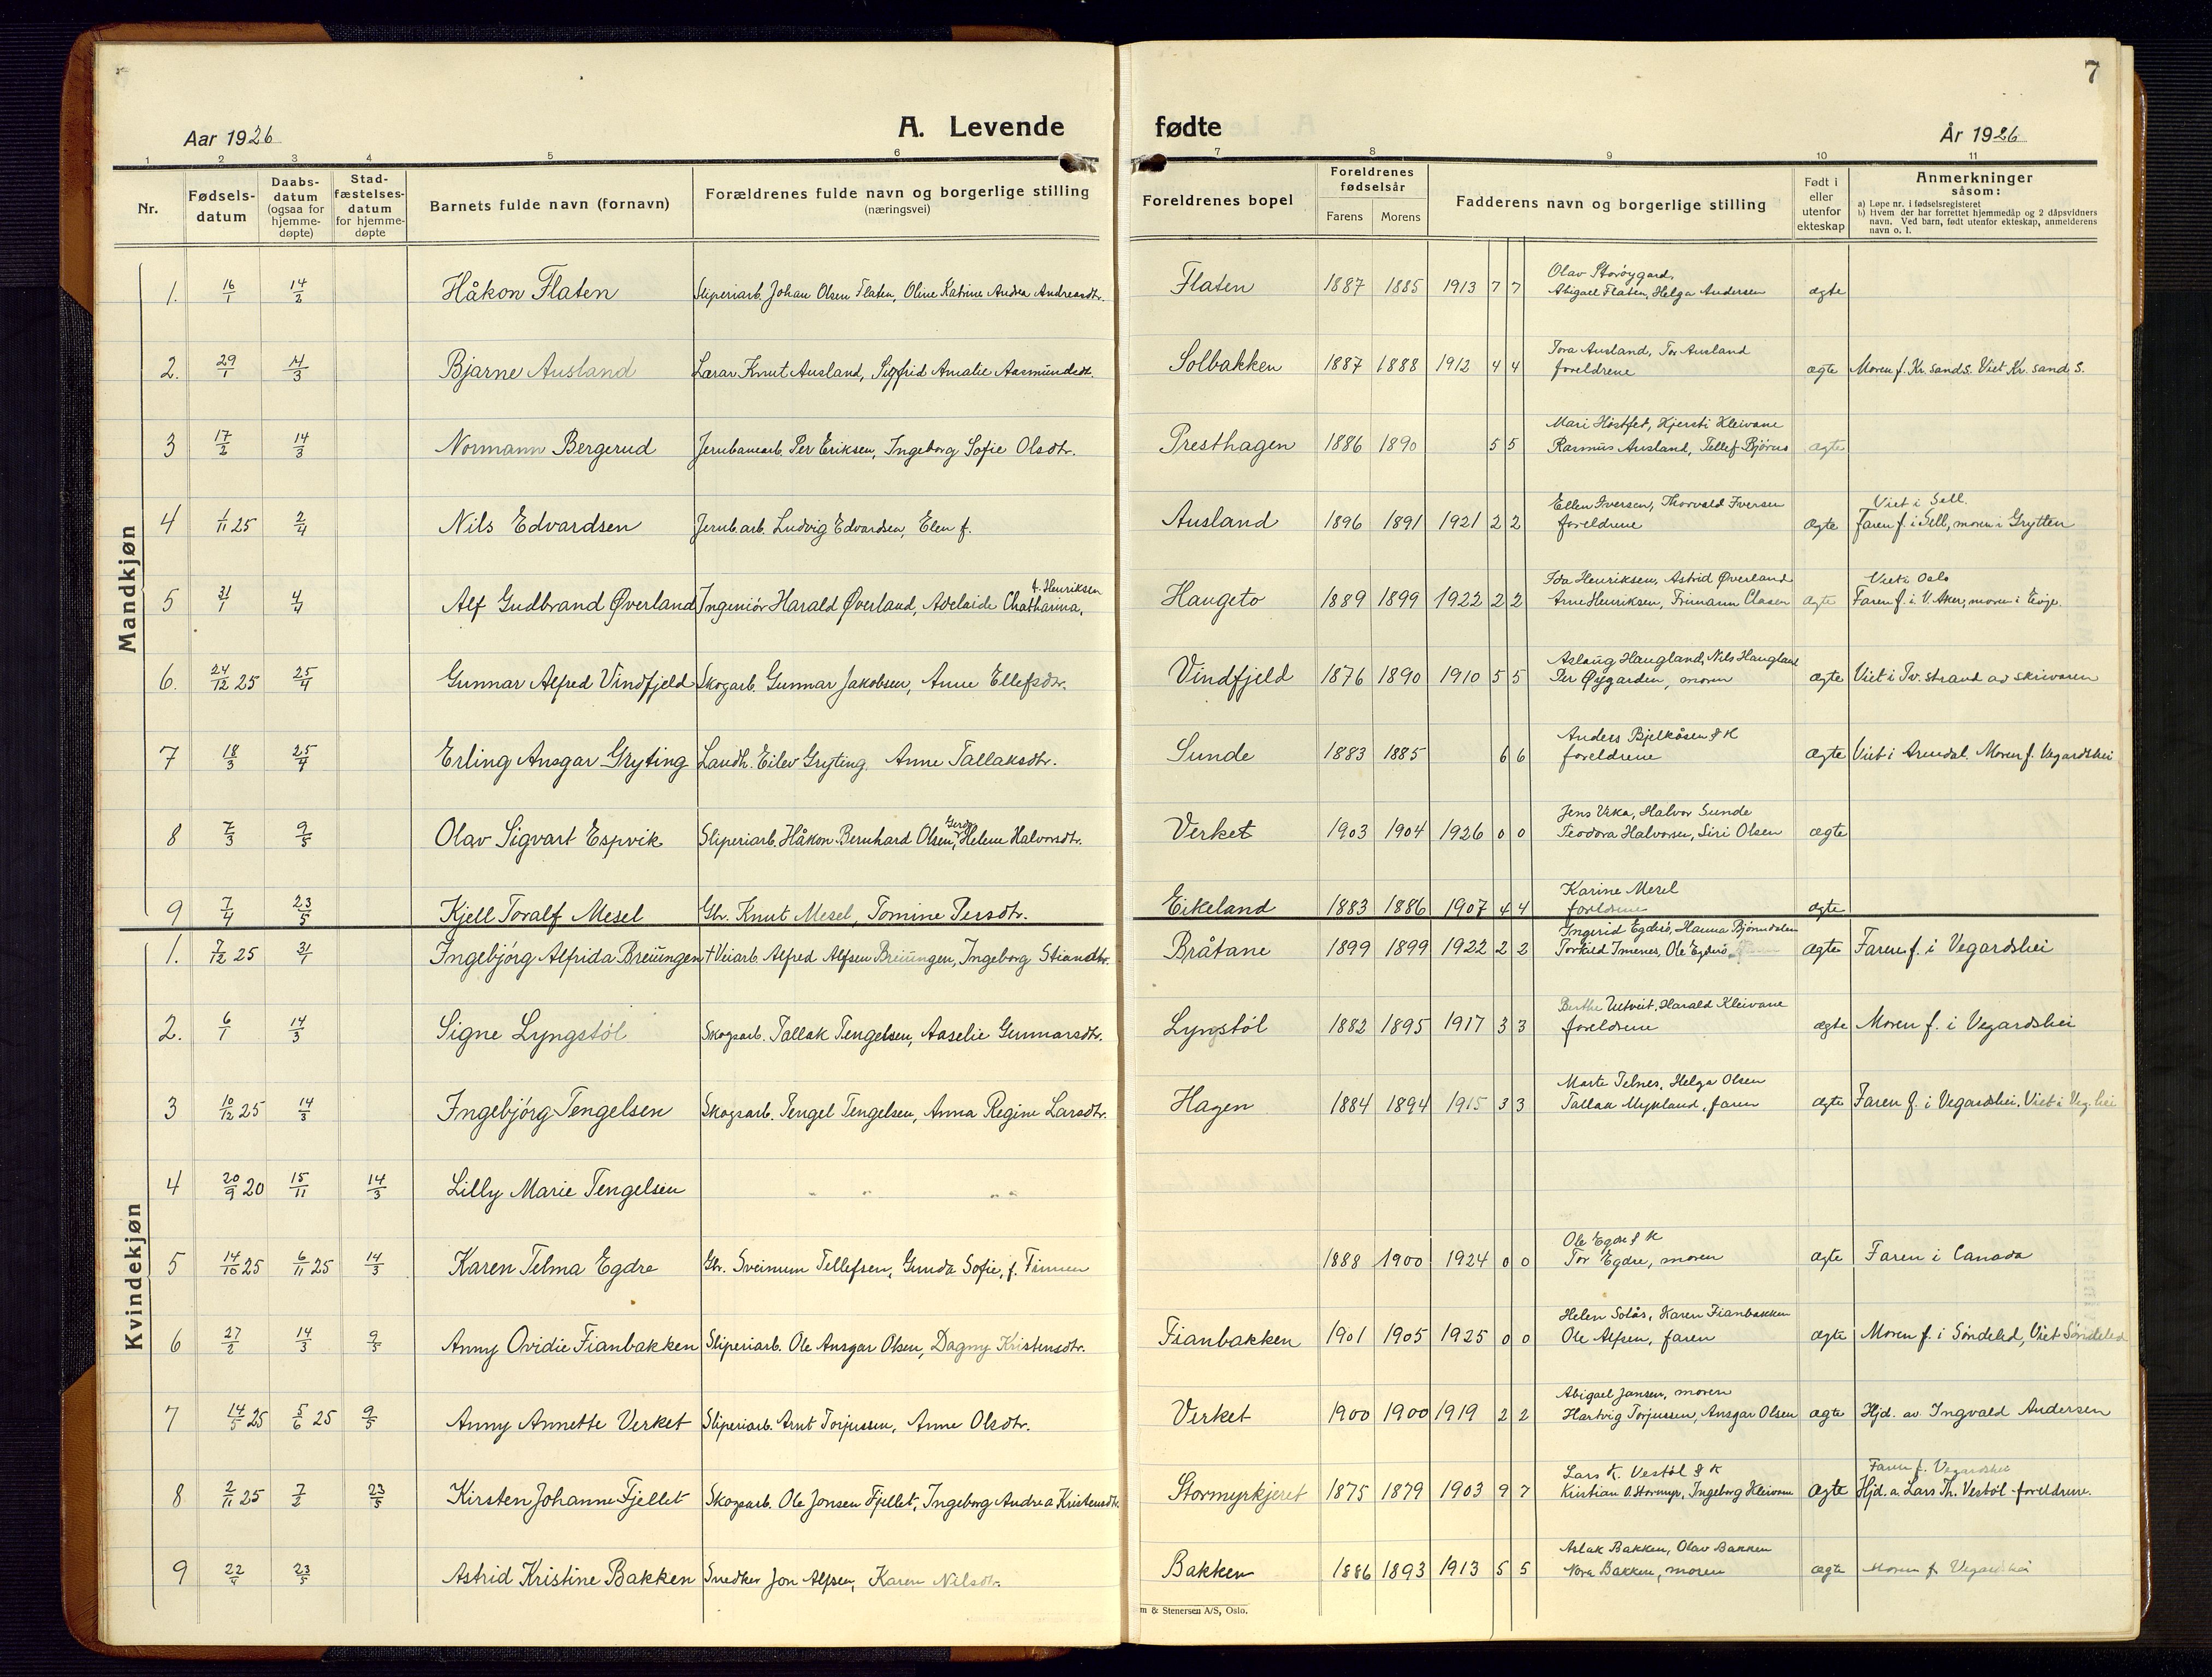 7
Aar 1926
A. Levende
fødte
År 1926
1 2 3 4 5 6 7 8 9 10 11
Nr.
Fødsels-datum
Daabs-datum (ogsaa for hjemme-døpte)
Stad-fæstelses-datum for hjemme-døpte
Barnets fulde navn (fornavn)
Forældrenes fulde navn og borgerlige stilling (næringsvei)
Foreldrenes bopel
Foreldrenes fødselsår
Farens Morens
Fadderens navn og borgerlige stilling
Født i eller utenfor ekteskap
Anmerkninger såsom:
a) Løpe nr. i fødselsregisteret
b) Hvem der har forrettet hjemmedåp og 2 dåpsvidners navn. Ved barn, født utenfor ekteskap, anmelderens navn o. l.
Mandkjøn
1. 16/1 14/2 Håkon Flaten Sliperiarb. Johan Olsen Flaten, Oline Katrine Andrea Andreasdtr. Flaten 1887 1885 1913 7 7 Olav Storøygard, Abigael Flaten, Helga Andersen ægte
2. 29/1 14/3 Bjarne Ausland Lærar Knut Ausland, Sigfrid Amalie Aasmundsdt. Solbakken 1887 1888 1912 4 4 Tora Ausland, Tor Ausland foreldrene ægte Moren f. Kr.sand S. Viet Kr.sand S.
3 17/2 14/3 Normann Bergerud Jernbanearb. Per Eriksen, Ingeborg Sofie Olsdtr. Presthagen 1886 1890 5 5 Mari Høstfet, Kjersti Kleivane Rasmus Ausland, Tellef Bjørus ægte
4 1/11 25 2/4 Nils Edvardsen Jernb.arb. Ludvig Edvardsen, Elen f. Ausland 1896 1891 1921 2 2 Ellen Iversen, Thorvald Iversen foreldrene ægte Viet i Sell. Faren f. i Sell, moren i Grytten
5 31/1 4/4 Alf Gudbrand Øverland Ingeniør Harald Øverland, Adelaide Chatharina, f. Henriksen Haugeto 1889 1899 1922 2 2 Ida Henriksen, Astrid Øverland Arne Henriksen, Frimann Clasen ægte Viet i Oslo Faren f. i V. Aker, moren i Evje.
6. 24/12 25 25/4 Gunnar Alfred Vindfjeld Skogarb. Gunnar Jakobsen, Anne Ellefsdtr. Vindfjeld 1876 1890 1910 5 5 Aslaug Haugland, Nils Haugland Per Øygarden, moren ægte Viet i Tv.strand av skriveren
7 18/3 25/4 Erling Ansgar Gryting Landh. Eilev Gryting. Anne Tallaksdtr. Sunde 1883 1885 6 6 Anders Bjelkåsen & K foreldrene ægte Viet i Arendal. Moren f. Vegardshei
8 7/3 9/5 Olav Sigvart Espvik Sliperiarb. Håkon Bernhard Olsen, Gerda Helene Halvorsdtr. Verket 1903 1904 1926 0 0 Jens Veka, Halvor Sunde Teodora Halvorsen, Siri Olsen ægte
9 7/4 23/5 Kjell Toralf Mesel Gbr. Knut Mesel, Tomine Persdtr. Eikeland 1883 1886 1907 4 4 Karine Mesel foreldrene ægte
Kvindekjøn
1. 7/12 25 31/1 Ingebjörg Alfrida Breiungen † Veiarb. Alfred Alfsen Breiungen, Ingeborg Stiandtr. Bråtane 1899 1899 1922 2 2 Ingerid Egderö, Hanna Bjørndalen Torkild Imenes, Ole Egderö ægte Faren f. i Vegardshei
2. 6/1 14/3 Signe Lyngstöl Skogsarb. Tallak Tengelsen, Aaselie Gunnarsdtr. Lyngstöl 1882 1895 1917 3 3 Berthe Utveit, Harald Kleivane foreldrene ægte Moren f. i Vegardshei
3 10/12 25 14/3 Ingebjörg Tengelsen Skogsarb. Tengel Tengelsen, Anna Regine Larsdtr. Hagen 1884 1894 1915 3 3 Marte Telnes, Helga Olsen Tallak Mykland, faren ægte Faren f. i Vegardshei. Viet i Veg.hei
4 20/9 20 15/11 14/3 Lilly Marie Tengelsen " " " "
5 14/10 25 6/11 25 14/3 Karen Telma Egdre Gbr. Sveinum Tellefsen, Gunda Sofie, f. Finnen 1888 1900 1924 0 0 Ole Egdre & K Tor Egdre, moren ægte Faren i Canada
6 27/2 14/3 9/5 Anny Ovidie Fianbakken Sliperiarb. Ole Ansgar Olsen, Dagny Kristensdtr. Fianbakken 1901 1905 1925 0 0 Helen Solås, Karen Fianbakken Ole Alfsen, faren ægte Moren f. i Søndeled, Viet Søndeled
7 14/5 25 5/6 25 9/5 Anny Annette Verket Sliperiarb. Arnt Torjussen, Anne Olsdtr. Verket 1900 1900 1919 2 2 Abigael Jansen, moren Hartvig Torjussen, Ansgar Olsen ægte Hjd. av Ingvald Andersen
8 2/11 25 7/2 23/5 Kirsten Johanne Fjellet Skogsarb. Ole Jonsen Fjellet, Ingeborg Andrea Kristensdtr Stormyrkjeret 1875 1879 1903 9 7 Lars K. Vestöl & K Kristian O. Stormyr, Ingeborg Kleivane ægte Faren f. Vegardshei Hjd. a. Lars Th. Vestöl - foreldrene.
9 22/4 23/5 Astrid Kristine Bakken Snedker Jon Alfsen, Karen Nilsdtr. Bakken 1886 1893 1913 5 5 Aslak Bakken, Olav Bakken Nora Bakken, moren ægte Moren f. Vegardshei
m & Stenersen A/S, Oslo.